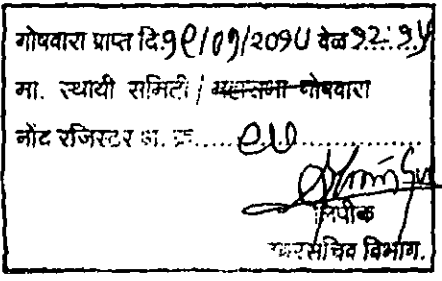 गोषवारा प्राप्त दि.१९/०१/२०१५ वेळ १२:१५
मा. स्थायी समिती / महासभा गोषवारा
नोंद रजिस्टर अ. क्र..... ९५ ............
लिपीक
नगरसचिव विभाग.